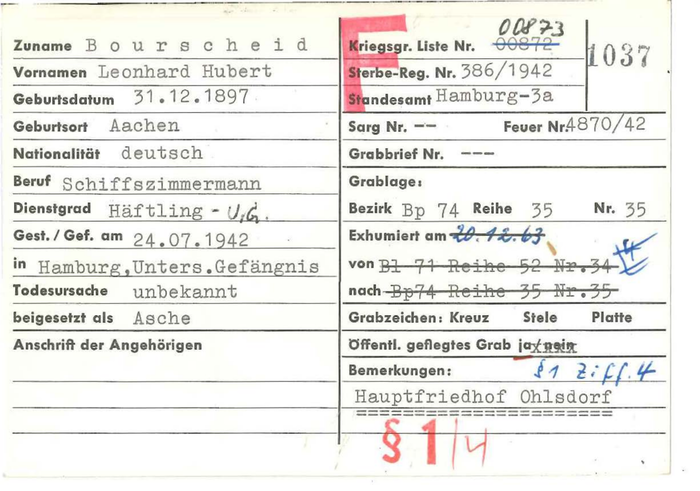 Zuname Bourscheid
Vornamen Leonhard Hubert
Geburtsdatum 31.12.1897
Geburtsort Aachen
Nationalität deutsch
Beruf Schiffszimmermann
Dienstgrad Häftling - U.G.
Gest./Gef. am 24.07.1942
in Hamburg,Unters.Gefängnis
Todesursache unbekannt
beigesetzt als Asche
Anschrift der Angehörigen
F
00873
Kriegsgr. Liste Nr. 00872
1037
Sterbe-Reg. Nr. 386/1942
Standesamt Hamburg-3a
Sarg Nr. -- Feuer Nr. 4870/42
Grabbrief Nr. ---
Grablage:
Bezirk Bp 74 Reihe 35 Nr. 35
Exhumiert am 20.12.63
von Bl 71 Reihe 52 Nr.34
nach Bp74 Reihe 35 Nr.35
Grabzeichen: Kreuz Stele Platte
Öffentl. gepflegtes Grab ja/nein
Bemerkungen: §1 Ziff.4
Hauptfriedhof Ohlsdorf
§ 1/4